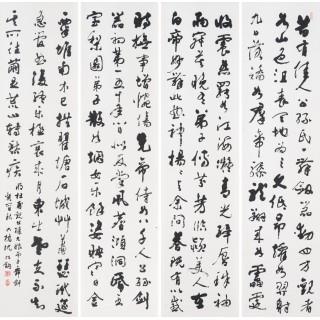 昔有佳人公孫氏一舞劍器動四方觀者如
山色沮喪天地為之久低昂㸌如羿射
九日落矯如群帝驂龍翔來如雷霆
收震怒罷如江海凝清光絳唇珠袖
兩寂寞晚有弟子傳芬芳臨潁美人在
白帝妙舞此曲神揚揚與余問答既有以感
時撫事增惋傷先帝侍女八千人公孫劍
器初第一五十年間似反掌風塵澒洞昏王
室梨園弟子散如煙女樂餘姿映寒日金
粟堆南木已拱瞿塘石城草蕭瑟玳筵
急管曲復終樂極哀來月東出老夫不知
其所往足繭荒山轉愁疾
杜甫觀公孫大娘弟子舞劍